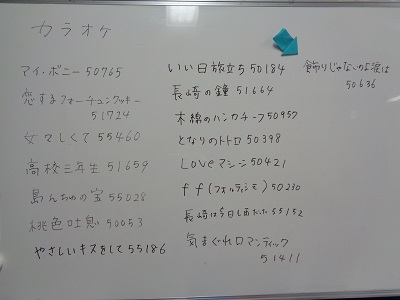 カラオケ
マイ・ボニー 50765
恋するフォーチュンクッキー
51724
女々しくて 55460
高校三年生 51659
島んちゅの宝 55028
桃色吐息 50053
やさしいキスをして 55186
いい日旅立ち 50184
長崎の鐘 51664
木綿のハンカチーフ 50957
となりのトトロ 50398
Loveマシーン 50421
ff(フォルティシモ) 50230
長崎は今日も雨だった 55152
気まぐれロマンティック
51411
飾りじゃないのよ涙は
50636